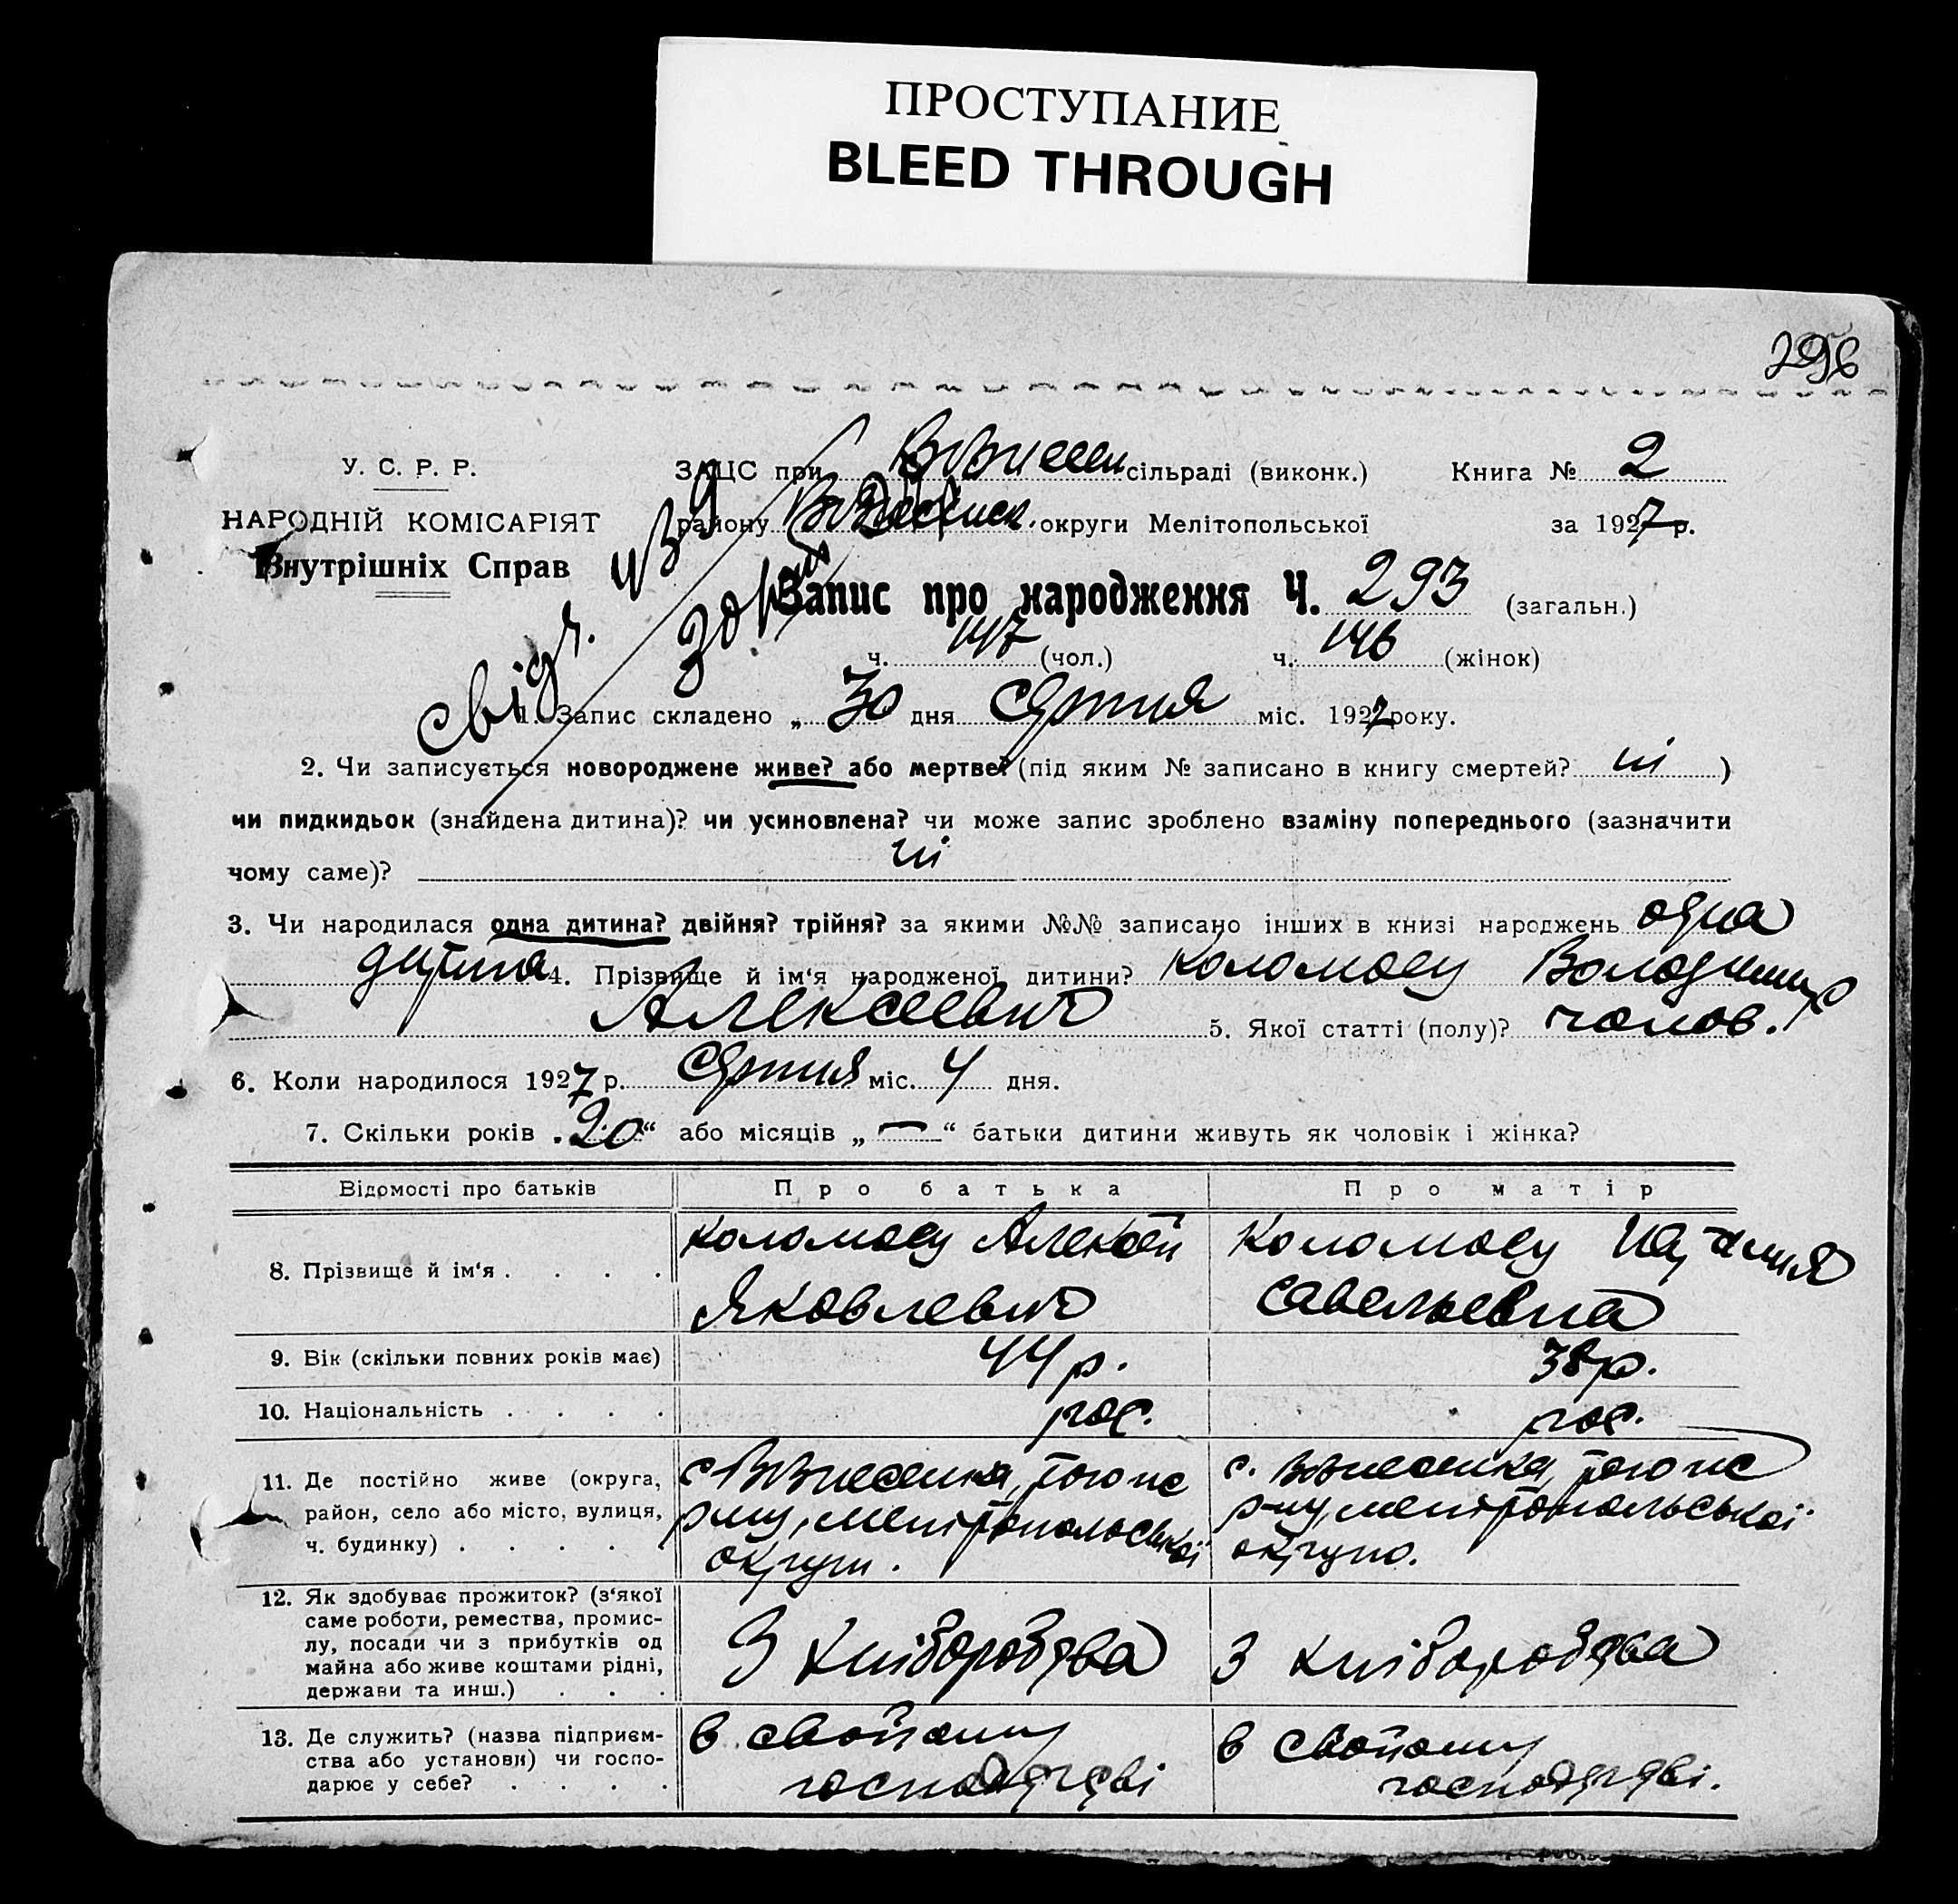 ПРОСТУПАНИЕ
BLEED THROUGH
296
У. С. Р. Р.
ЗАЦС при Вознесен сільраді (виконк.) Книга № 2
НАРОДНІЙ КОМІСАРІЯТ
району округи Мелітопольської за 1927 р.
Внутрішніх Справ
Запис про народження Ч. 293 (загальн.)
ч. 147 (чол.) ч. 146 (жінок)
свід.
1. Запис складено „ 30 дня Серпня міс. 1927 року.
2. Чи записується новороджене живе? або мертве? (під яким № записано в книгу смертей? ні )
чи пидкидьок (знайдена дитина)? чи усиновлена? чи може запис зроблено взаміну попереднього (зазначити
чому саме)? ні
3. Чи народилася одна дитина? двійня? трійня? за якими №№ записано інших в книзі народжень одна
дитина 4. Прізвище й ім'я народженої дитини? Коломоец Володимир
Алексеевич 5. Якої статті (полу)? чолов.
6. Коли народилося 1927 р. Серпня міс. 4 дня.
7. Скільки років „20“ або місяців „—“ батьки дитини живуть як чоловік і жінка?
Відомості про батьків Про батька Про матір
8. Прізвище й ім'я . . . . Коломоец Алексей Яковлевич
Коломоец Савельевна
9. Вік (скільки повних років має) 44 р. 38 р.
10. Національність . . . . рос. рос.
11. Де постійно живе (округа,
район, село або місто, вулиця,
ч. будинку) . . . . .
с Вознесенка, того ж
р-ну, мелітопольської
округи.
с. Вознесенка, того ж
р-ну, мелітопольської
округи.
12. Як здобуває прожиток? (з'якої
саме роботи, ремества, промис-
лу, посади чи з прибутків од
майна або живе коштами рідні,
держави та инш.) . . .
З хліборобства
З хліборобства
13. Де служить? (назва підприєм-
ства або установи) чи госпо-
дарює у себе? . . . .
в свойому
господарстві
в свойому
господарстві.